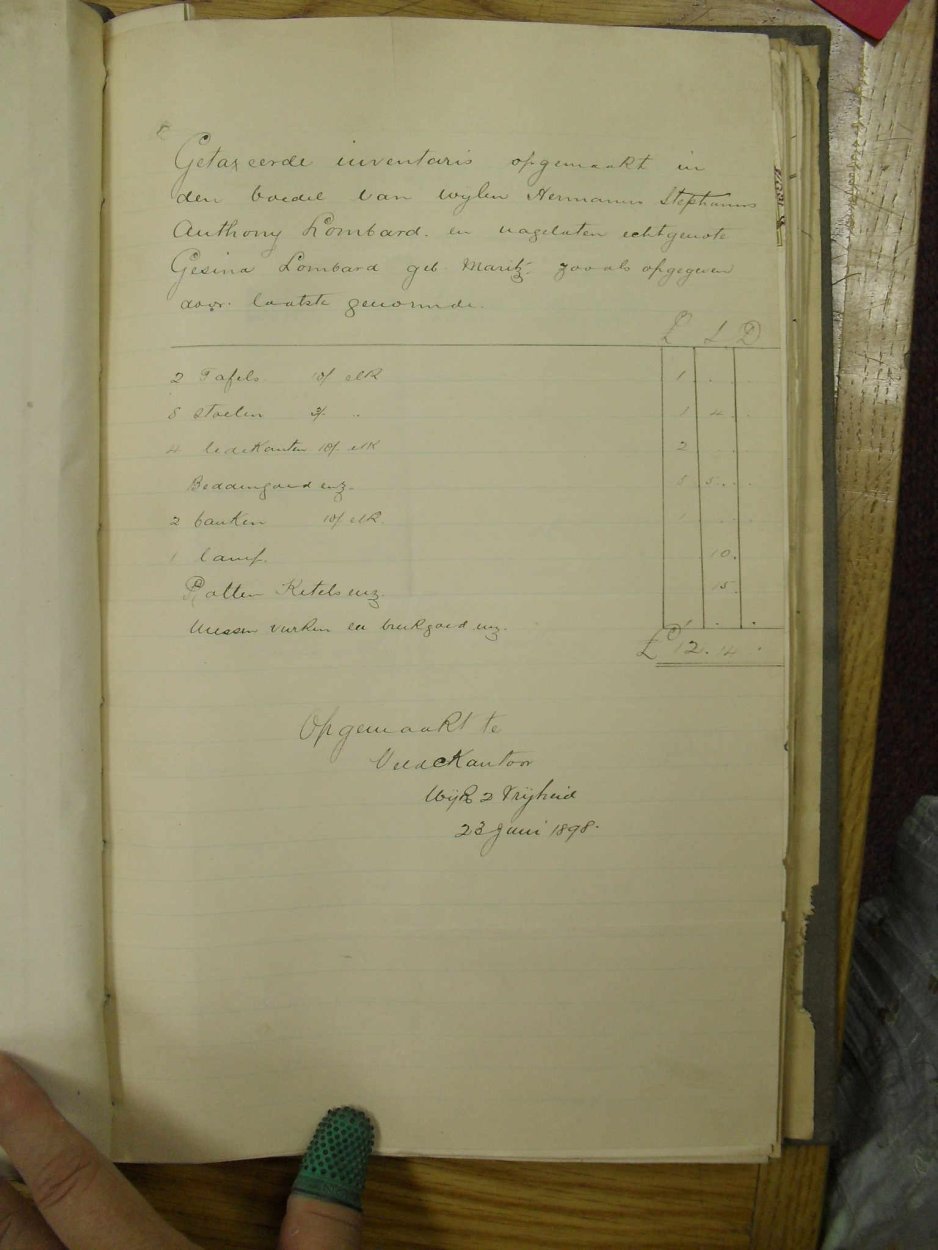 Getaxeerde inventaris opgemaakt in
den boedel van wijlen Hermanus Stephanus
Anthony Lombard. en nagelaten echtgenote
Gesina Lombard geb. Maritz. zooals opgegeven
door laatste genoemde.
£ S D
2 Tafels 10/ elk 1 . .
8 stoelen 3/ . 1 4 .
4 ledekanten 10/ elk 2 . .
Beddengoed enz. 5 5 .
2 banken 10/ elk. 1 . .
1 lamp. 10 .
Potten Ketels enz. 15 .
Messen vurken en breekgoed enz. 1 . .
£ 12. 14 .
Opgemaakt te
Veldkantoor
Wijk 2 Vrijheid
23 Juni 1898.